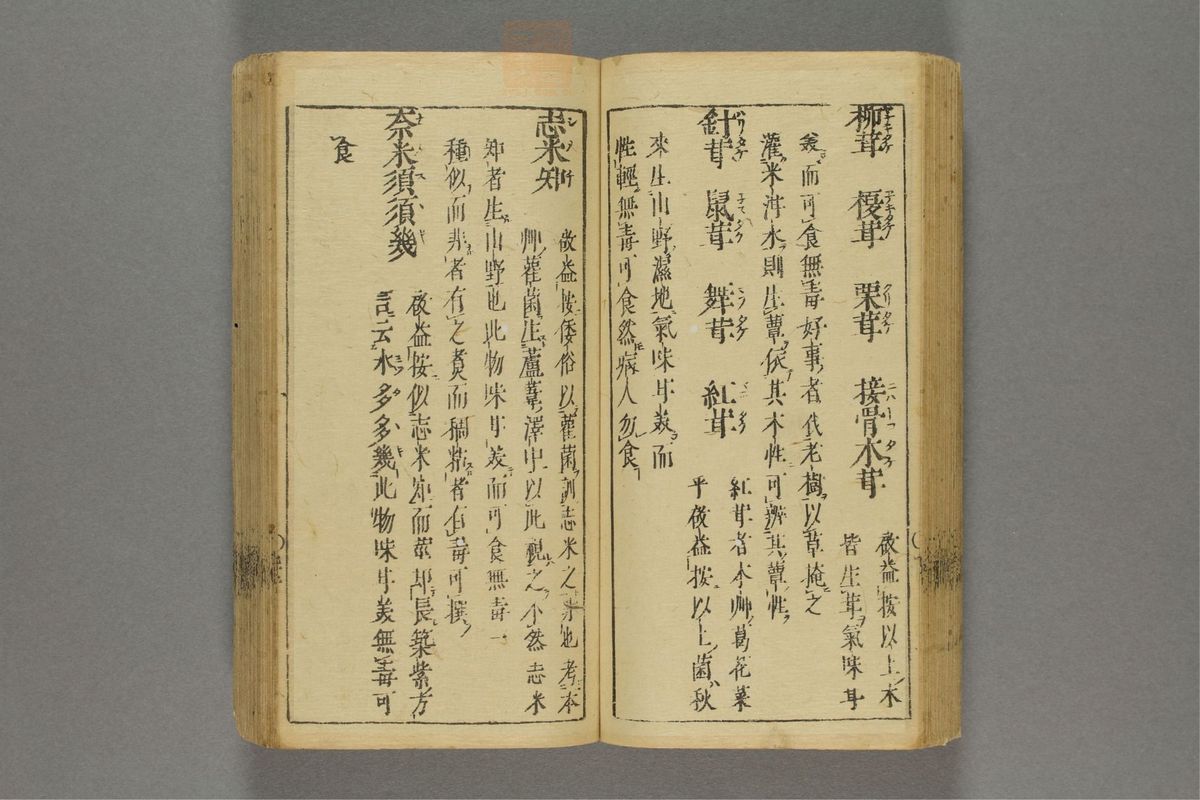 柳茸　榎茸　栗茸　接骨木茸
敬益按以上木
皆生茸氣味甘
美而可食無毒好事者伐老樹以草掩之
灌米泔水則生蕈依其木性可辨其蕈性
針茸　鼠茸　舞茸　紅茸
紅茸者本艸葛花菜
乎敬益按以上菌秋
來生山野濕地氣味甘美而
性輕無毒可食然病人勿食
志米知
敬益按倭俗以雚菌訓志米之
艸雚菌生蘆葦澤中以此觀之不然志米
知者生山野也此物味甘美而可食無毒一
種似而非者有之煑而稠粘者有毒可撰
奈米須須幾
敬益按似志米知而莖長築紫方
言云水多多幾此物味甘美無毒可
食